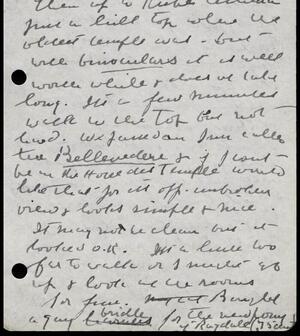 Then up to
just a hill top where the
oldest temple was - but
with binoculars it is well
worth while & does not take
long. It's a few minutes
walk to the top but not
hard. We saw an Inn called
the Bellevedere & if I wasn't
be in the House dest Temple would
like that for its off-unbroken
view & looks simple & nice.
It may not be clean but it
looked O.K. It's a little too
far to walk or I might go
up & look at the rooms
for fun. bought
a gay bridle for the new pony